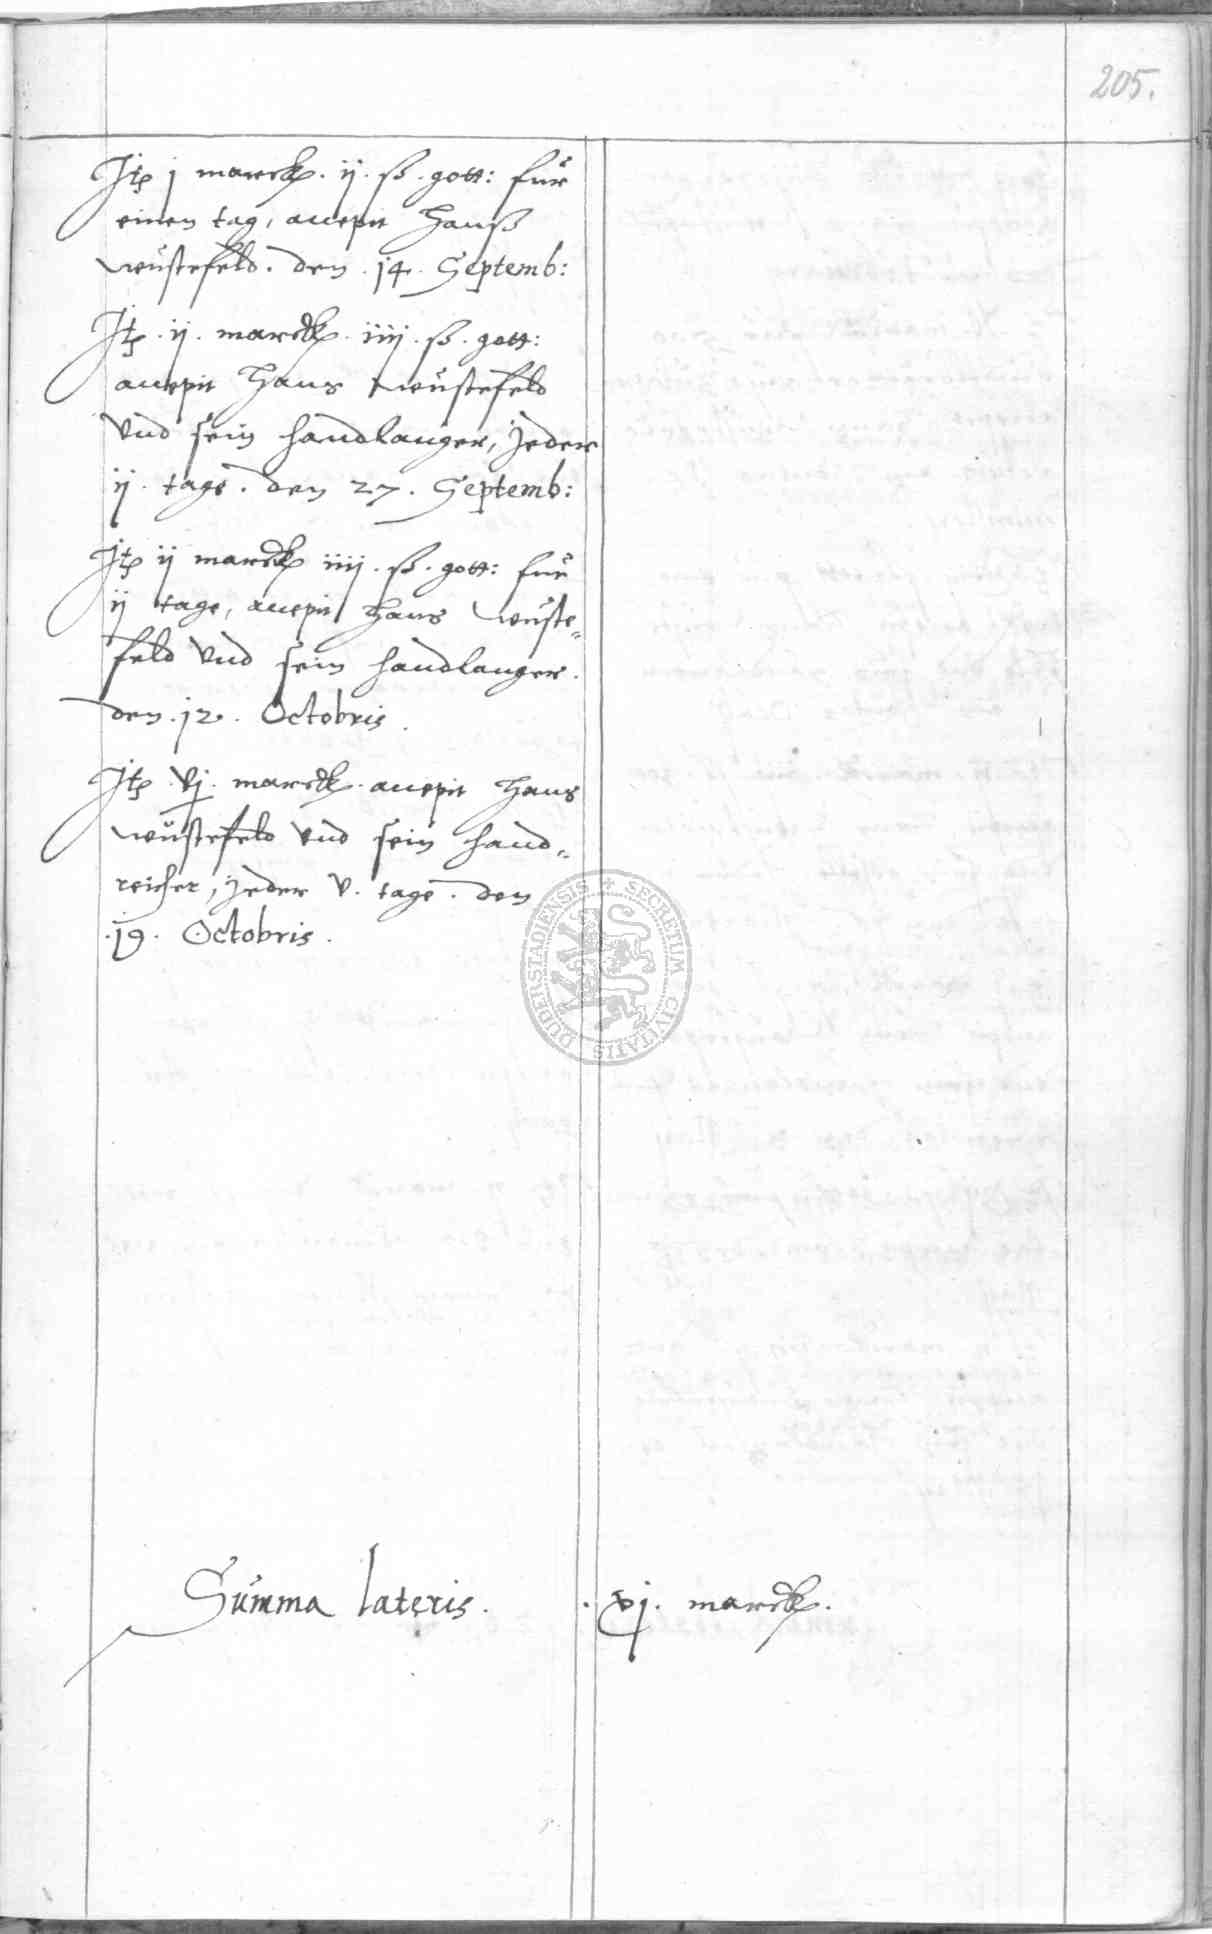 205.
Jtꝫ j marck. ij. ß. gott: fur
einen tag, accepit Hanß
wustefeld. den. 14. Septemb:
Jtꝫ. ij. marck. iiij. ß. gott:
accepit Hans wustefeld
vnd sein handlanger, jeder
ij. tage. den 27. Septemb:
Jtꝫ ij marck iiij. ß. gott: fur
ij tage, accepit Hans wuste-
feld vnd sein handlanger.
den. 12. Octobris.
Jtꝫ. vj. marck. accepit Hans
wustefeld vnd sein hand-
reicher, jeder v. tage. den
.19. Octobris.
SECRETUM CIVITATIS DUDERSTADIENSIS
Summa lateris. . xj. marck.